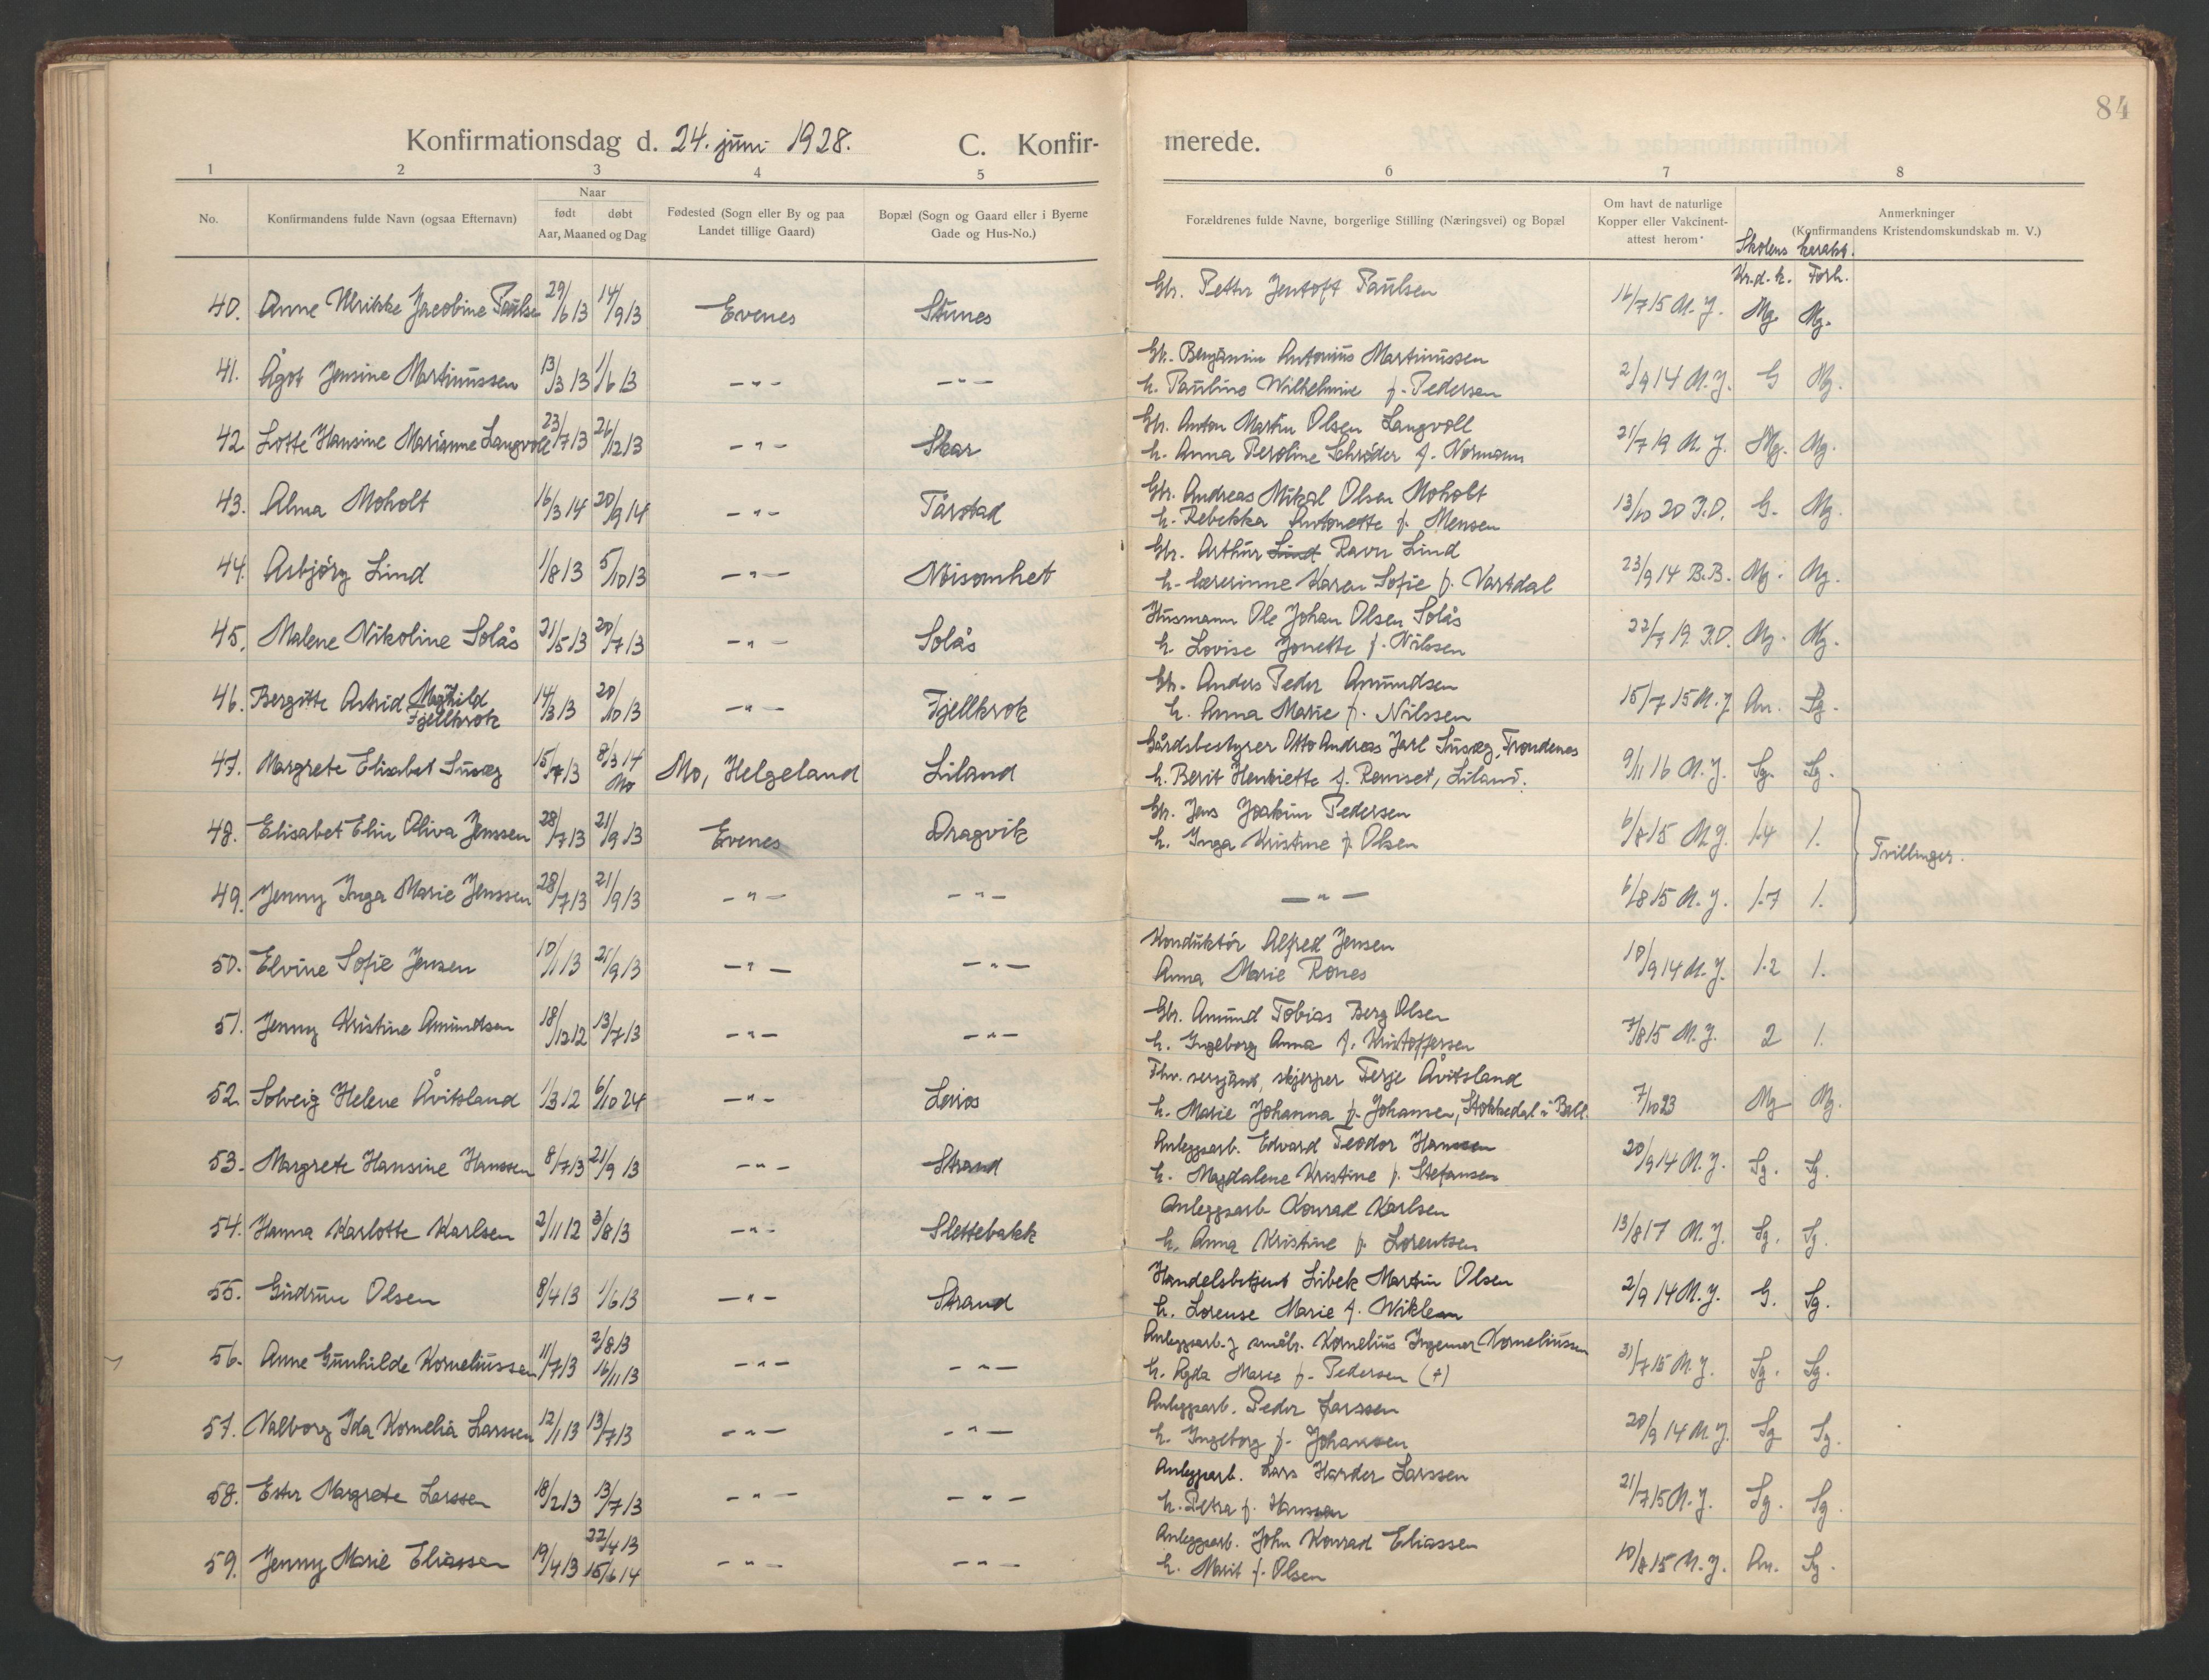 84
Konfirmationsdag d. 24. juni 1928. C. Konfir- merede.
1 2 3 4 5 6 7 8
No.
Konfirmandens fulde Navn (ogsaa Efternavn)
Naar
født døbt
Aar, Maaned og Dag
Fødested (Sogn eller By og paa
Landet tillige Gaard)
Bopæl (Sogn og Gaard eller i Byerne
Gade og Hus-No.)
Forældrenes fulde Navne, borgerlige Stilling (Næringsvei) og Bopæl
Om havt de naturlige
Kopper eller Vakcinent-
attest herom
Anmerkninger
(Konfirmandens Kristendomskundskab m. V.)
Skolens karakt.
Kr.d.k. Forh.
Gbr. Petter Jentoft Paulsen
40. Anne Ulrikke Jacobine Paulsen 29/6 13 14/9 13 Evenes Stunes 16/7 15 M.J. Mg. Mg.
Gbr. Benjamin Antonius Martinussen
41. Ågot Jensine Martinussen 13/3 13 1/6 13 -"- -"- 2/9 14 M.J. G Mg.
h. Pauline Wilhelmine f. Pedersen
Gbr. Anton Martin Olsen Langvoll
42 Lotte Hansine Marianne Langvoll 23/7 13 26/12 13 -"- Skar 21/7 19 M.J. Mg. Mg.
h. Anna Peroline Schrøder f. Normann
Gbr. Andreas Mikal Olsen Moholt
43. Alma Moholt 16/3 14 20/9 14 -"- Tårstad 13/10 20 I.D. G. Mg.
h. Rebekka Antonette f. Mensen
Gbr. Arthur Lind Ravn Lind
44. Asbjörg Lind 1/8 13 5/10 13 -"- Nöisomhet 23/9 14 B.B. Mg. Mg.
h. lærerinne Karen Sofie f. Vartdal
Husmann Ole Johan Olsen Solås
45. Malene Nikoline Solås 21/5 13 20/7 13 -"- Solås 22/7 19 I.D. Mg. Mg.
h. Lovise Jonette f. Nilssen
Gbr. Anders Peder Amundsen
46. Bergitte Astrid Maghild
Fjellkrok 14/3 13 20/10 13 -"- Fjellkrok 15/7 15 M.J An. Sg.
h. Anna Marie f. Nilssen
Gårdsbestyrer Otto Andreas Jarl Susæg, Trondenes
47. Margrete Elisabet Susæg 15/7 13 8/3 14 Mo Mo, Helgeland Liland 9/11 16 M.J. Sg. Sg.
h. Berit Henriette f. Remset, Liland.
Gbr. Jens Joakim Pedersen
48. Elisabet Elin Oliva Jenssen 28/7 13 21/9 13 Evenes Dragvik 6/8 15 M.J. 1.4 1.
h. Inga Kristine f. Olsen
Tvillinger.
49. Jenny Inga Marie Jenssen 28/7 13 21/9 13 -"- -"- -"- 6/8 15 M.J. 1.7 1.
Konduktör Alfred Jensen
50. Elvine Sofie Jensen 10/11 13 21/9 13 -"- -"- 10/9 14 M.J. 1.2 1.
Anna Marie Rones
Gbr. Amund Tobias Berg Olsen
51. Jenny Kristine Amundsen 18/12 12 13/7 13 -"- -"- 7/8 15 M.J. 2 1.
h. Ingeborg Anna f. Kristoffersen
Fhv. sersjant, skjerper Terje Åvitsland
52. Solveig Helene Åvitsland 1/3 12 6/10 24 -"- 7/10 23 Mg Mg.
h. Marie Johanna f. Johansen, Stokkedal i Ball.
Anleggsarb. Edvard Teodor Hanssen
53. Margrete Hansine Hanssen 8/7 13 21/9 13 -"- Strand 20/9 14 M.J. Sg. Sg.
h. Magdalene Kristine f. Stefansen
Anleggsarb Konrad Karlsen
54. Hanna Karlotte Karlsen 2/11 12 3/8 13 -"- Slettebakk 13/8 17 M.J. Sg. Sg.
h. Anna Kristine f. Lorentsen
Handelsbetjent Libek Martin Olsen
55. Gudrun Olsen 8/4 13 1/6 13 -"- Strand 2/9 14 M.J. G. Sg.
h. Lorense Marie f. Wiklem
Anleggsarb. j småbr. Kornelius Ingemar Korneliussen
56. Anne Gunhilde Korneliussen 11/7 13 2/8 13 16/11 13 -"- -"- 31/7 15 M.J. Sg. Sg.
h. Agda Marie f. Pedersen (+)
Anleggsarb. Peder Larssen
57. Valborg Ida Kornelia Larssen 12/1 13 13/7 13 -"- -"- 20/9 14 M.J. Sg Sg.
h. Ingeborg f. Johansen
Anleggsarb. Lars Harder Larssen
58. Ester Margrete Larssen 18/2 13 13/7 13 -"- -"- 21/7 15 M.J. Sg. Sg
h. Petra f. Hanssen
Anleggsarb. John Konrad Eliassen
59. Jenny Marie Eliassen 19/4 13 22/4 13 15/6 14 -"- -"- 10/8 15 M.J. An. Sg.
h. Marit f. Olsen